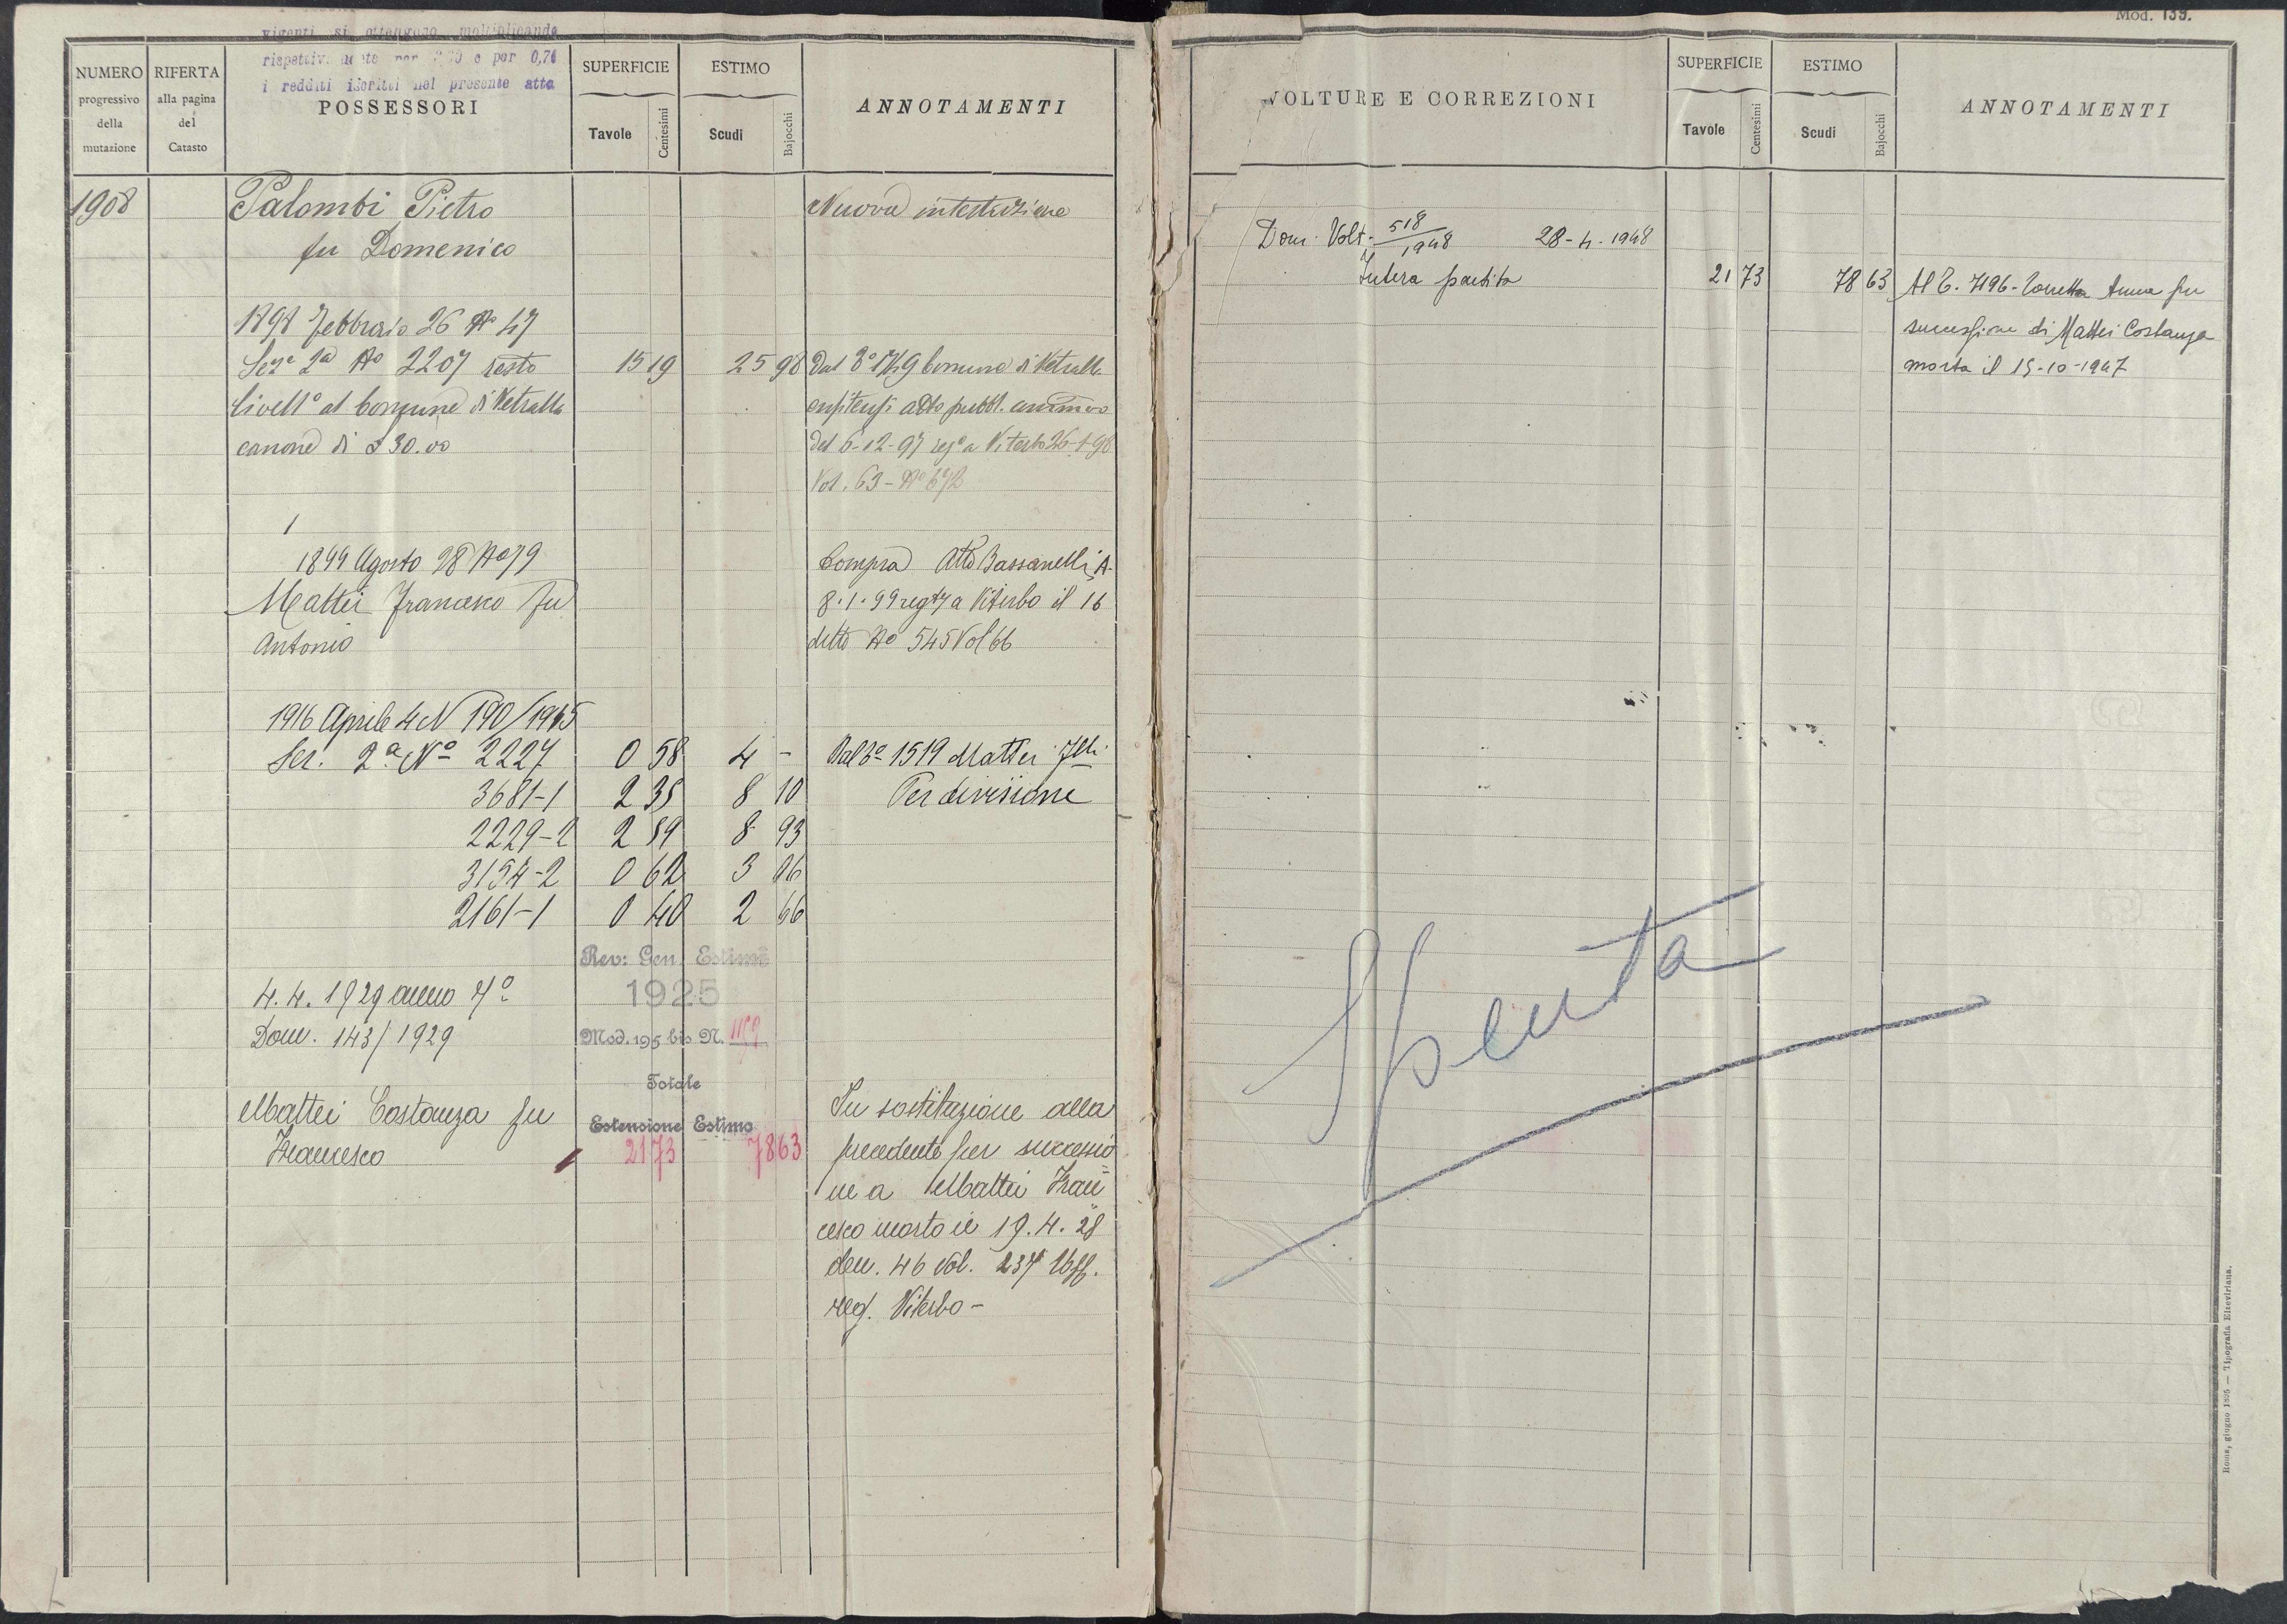 vigenti si ottengono moltiplicando
rispettivamente per e per 0,70
i redditi iscritti nel presente atto
NUMERO progressivo della mutazione
RIFERTA alla pagina del Catasto
POSSESSORI
SUPERFICIE
Tavole Centesimi
ESTIMO
Scudi Bajocchi
ANNOTAMENTI
1908 Palombi Pietro Nuova intestazione
fu Domenico
1898 Febbraio 26 No 47
Sez.e 2a No 2207 resto 15 19 25 98 Dal Comune di Vetralla
livello al Comune di Vetralla enfiteusi atto pubbl. ammvo
canone di £ 30.00 del 6-12-97 rego a Viterbo 26-1-98
Vol. 63 - No 672
1
1899 Agosto 28 No 79 Compra Atto Bassanelli A.
Mattei Francesco fu 8.1.99 a Viterbo il 16
Antonio detto No 545 Vol 66
1916 Aprile 4 N 190/1915
Sez. 2a No 2227 0 58 4 - Dal 1519 Mattei Flli
3681-1 2 35 8 10 Per divisione
2229-2 2 59 8 93
3154-2 0 62 3 06
2161-1 0 40 2 66
Rev: Gen. Estimi
1925
Mod. 195 bis N. 1159
4.4.1929 anno 7o
Dom. 143/1929
Totale
Estensione Estimo
21 73 78 63
Mattei Costanza fu
Francesco
In sostituzione alla
precedente per successio
ne a Mattei Fran
cesco morto il 19.4.28
den. 46 vol. 237 Uff.
reg. Viterbo -
Mod. 139.
VOLTURE E CORREZIONI
SUPERFICIE
Tavole Centesimi
ESTIMO
Scudi Bajocchi
ANNOTAMENTI
Dom. Volt. 518/1948 28-4-1948
Intera partita 21 73 78 63 Al 7196 - Anna per
successione di Mattei Costanza
morta il 15-10-1947
Spenta
Roma, giugno 1895 — Tipografia Elzeviriana.